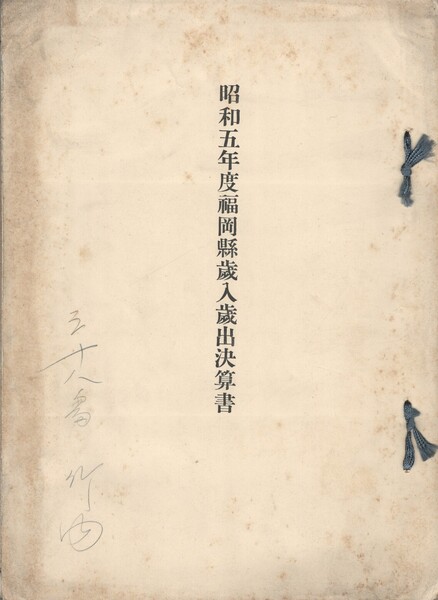 昭和五年度福岡縣歲入歲出決算書
三十八番 竹内